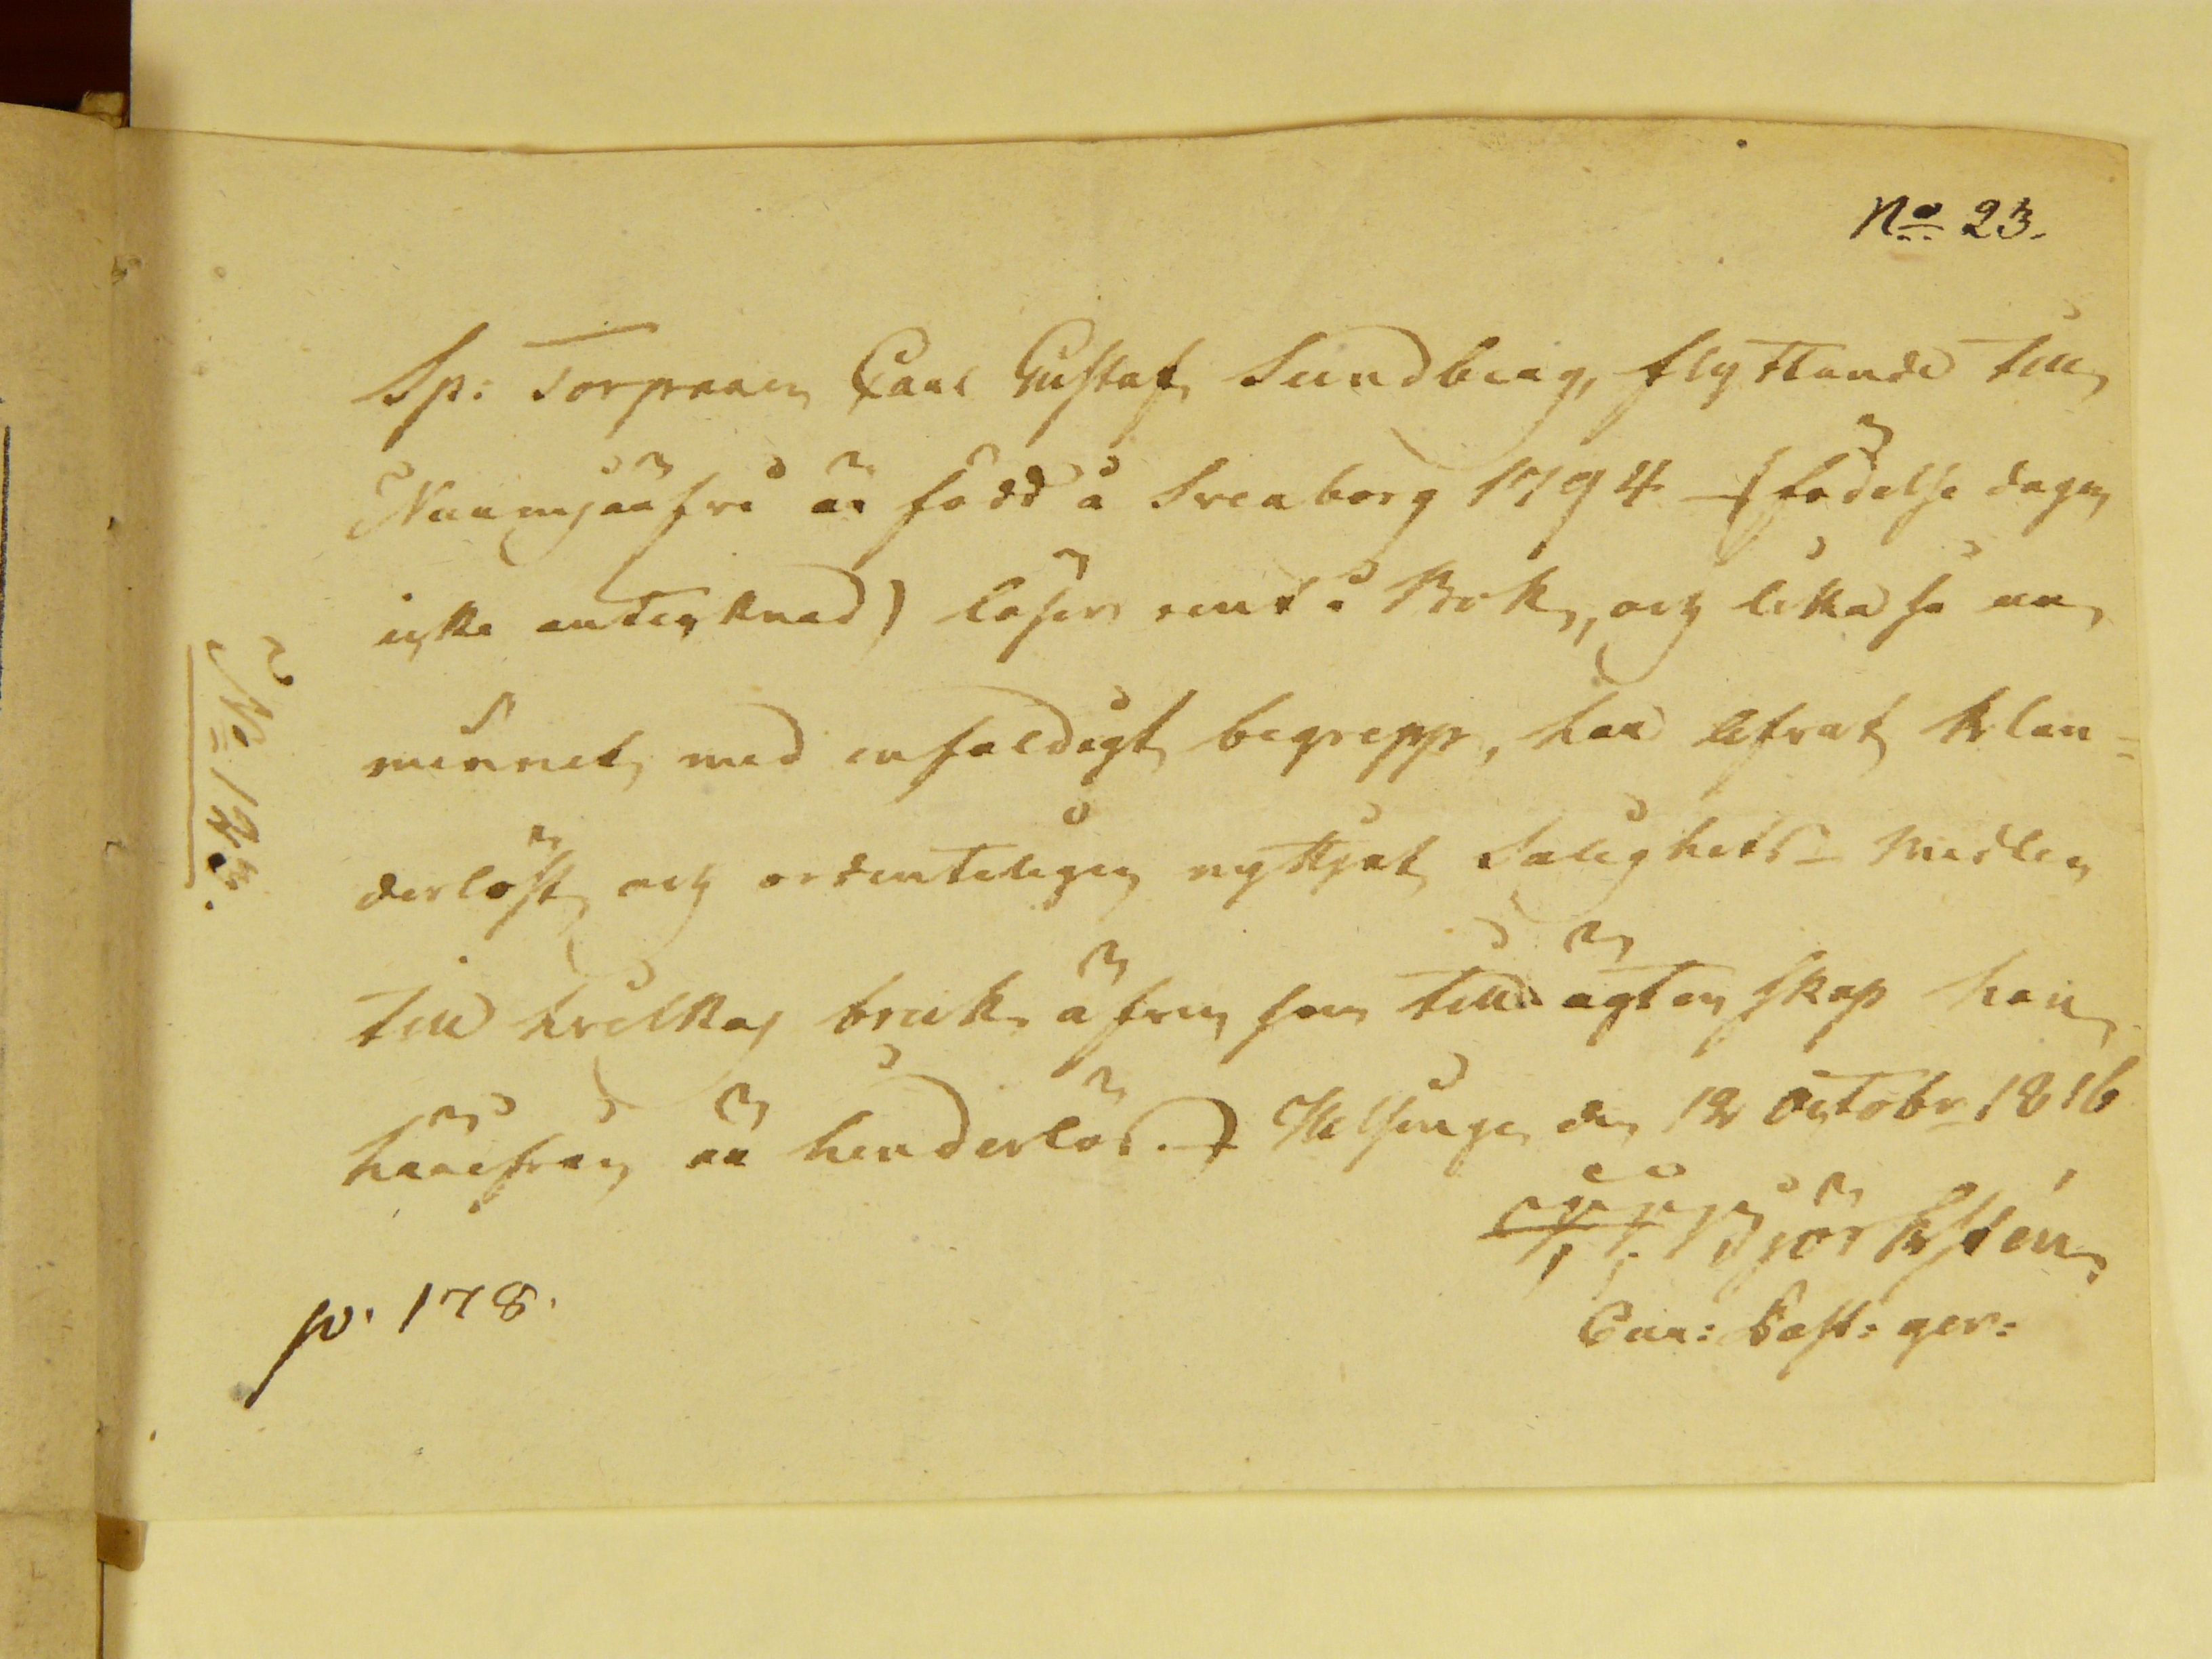 No 23.
Sp: Torparen Carl Gustaf Sundberg, flyttande till
Nummijärfvi är född å Sveaborg 1794 (födelse dagen
icke antecknad) läser rent i Bok, och lika så utur
minnet, med enfaldigt begrepp, har lefvat klan=
derlöst och ordenteligen nyttjat Salighets-Medlen
till hvilkas bruk äfven som till ägtenskap han
härifrån är hinderlös. Helsinge den 12 Octobr 1816
Björkstén
Cur: Past: ger:
p. 178.
No 123.